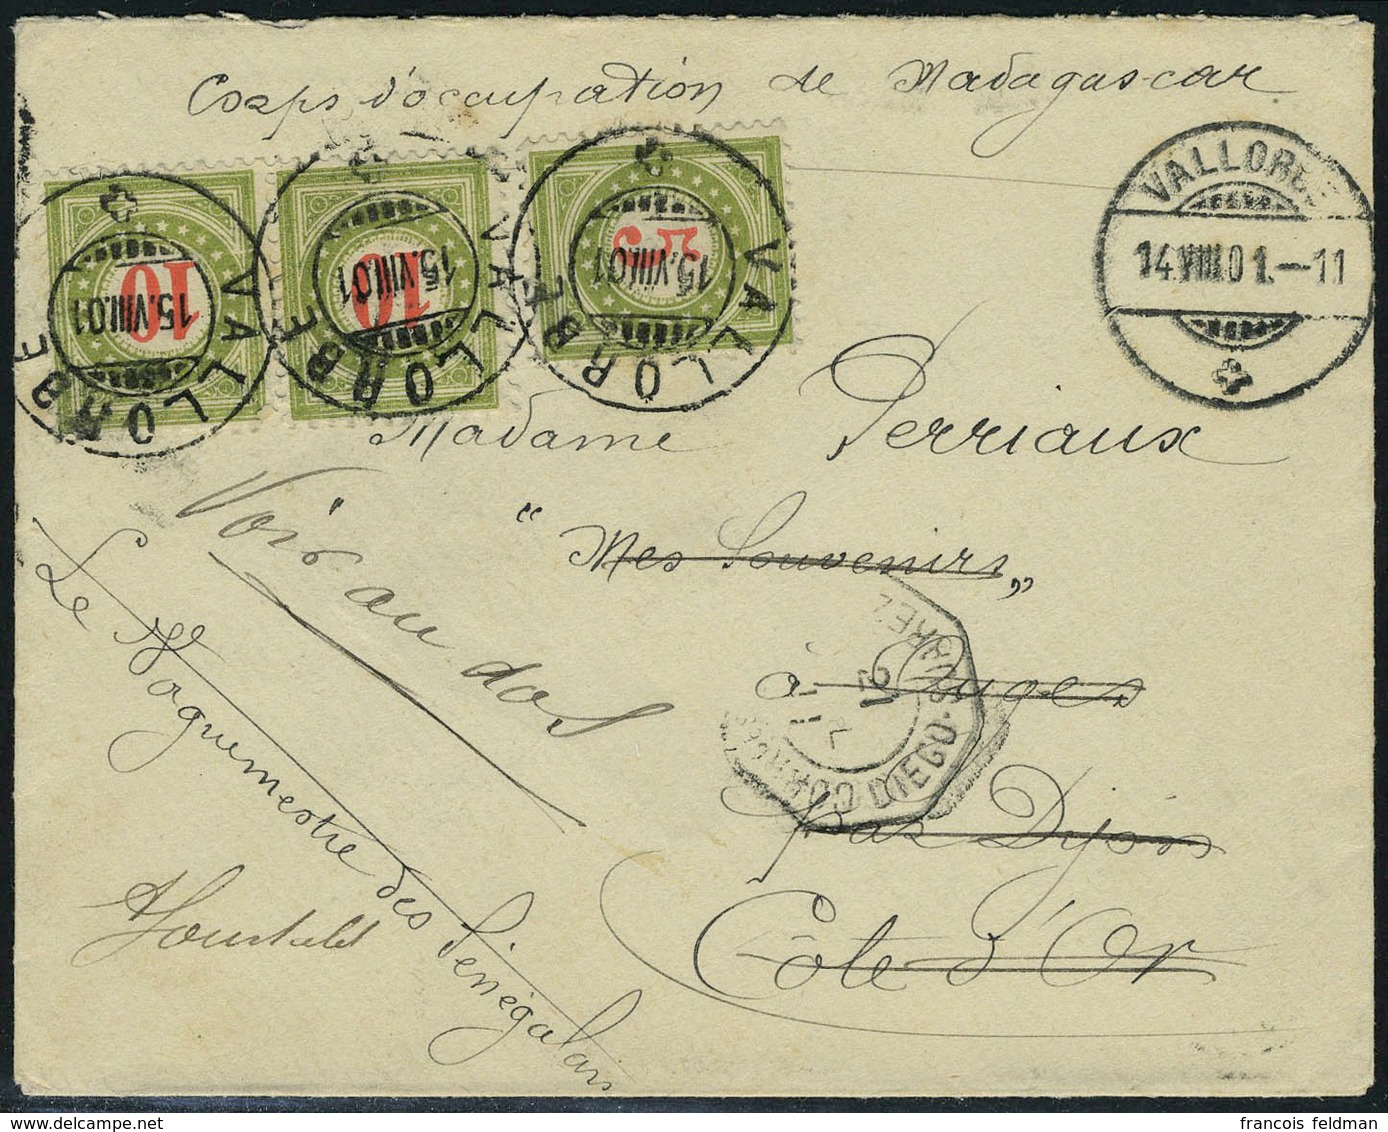 Corps d'occupation de Madagascar
VALLORBE
14.VIII.01.-11
10
VALLORBE
15.VIII.01
10
VALLORBE
15.VIII.01
5
VALLORBE
15.VIII.01
Madame Perriaux
"Mes Souvenirs"
à Ouges
par Dijon
Côte d'Or
Voir au dos
Le Vaguemestre des Sénégalais
DIEGO-SUAREZ
francois feldman